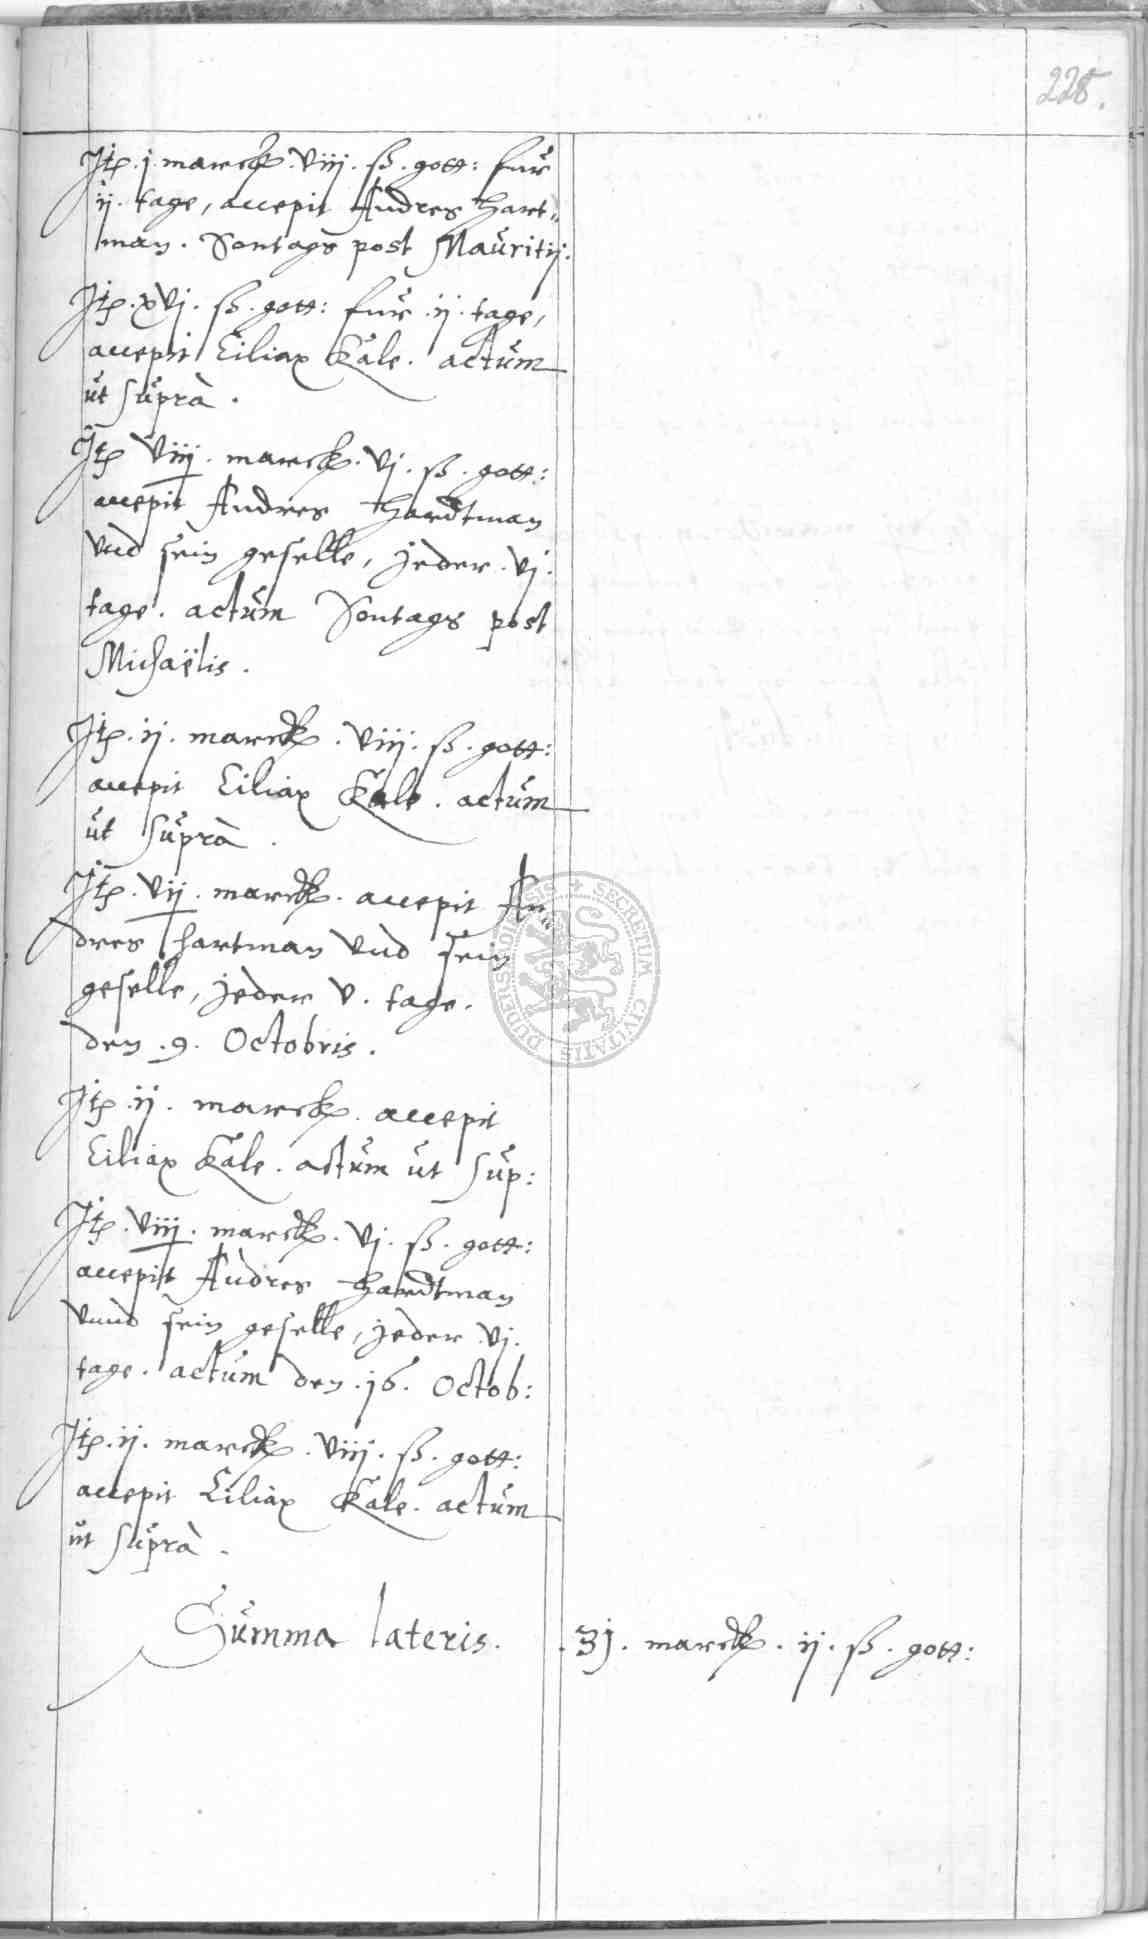 228.
Jtꝫ . j . marck . viij . ß . gott: fur
ij . tage, accepit Andres Hart„
man . Sontags post Mauritij:
Jtꝫ . xvj . ß . gott: fur . ij . tage,
accepit Ciliax Kale . actum
ut suprà .
Jtꝫ viij . marck . vj . ß . gott:
accepit Andres Hardtman
vnd sein geselle, jeder . vj .
tage . actum Sontags post
Michaëlis .
Jtꝫ . ij . marck . viij . ß . gott:
accepit Ciliax Kale . actum
ut suprà .
Jtꝫ . vij . marck . accepit An„
dres Hartman vnd sein
geselle, jeder v . tage .
den . 9 . Octobris .
Jtꝫ . ij . marck . accepit
Ciliax Kale . actum ut sup:
Jtꝫ . viij . marck . vj . ß . gott:
accepit Andres Hardtman
vnnd sein geselle, jeder vj .
tage . actum den . 16 . Octob:
Jtꝫ . ij . marck . viij . ß . gott:
accepit Ciliax Kale . actum
ut suprà .
Summa lateris . . 31 . marck . ij . ß . gott:
SECRETUM CIVITATIS DUDERSTADIENSIS